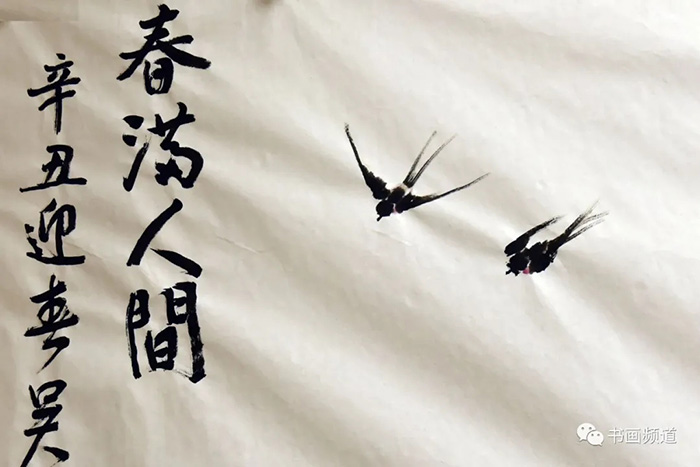 春满人間
辛丑迎春吴
书画频道